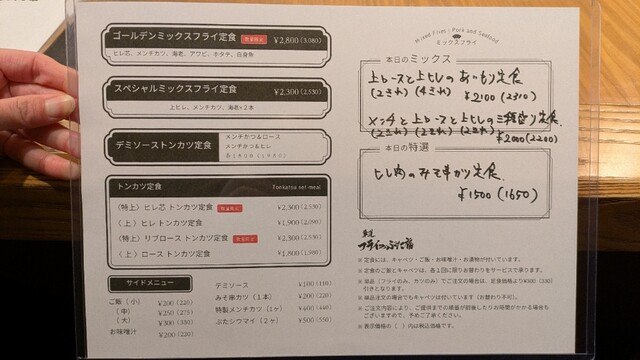 ゴールデンミックスフライ定食 数量限定 ¥2,800(3,080)
ヒレ芯、メンチカツ、海老、アワビ、ホタテ、白身魚
スペシャルミックスフライ定食 ¥2,300(2,530)
上ヒレ、メンチカツ、海老×2本
デミソーストンカツ定食
メンチかつ&ロース
メンチかつ&ヒレ
トンカツ定食 Tonkatsu set meal
〈特上〉ヒレ芯 トンカツ定食 数量限定 ¥2,300(2,530)
〈上〉ヒレ トンカツ定食 ¥1,900(2,090)
〈特上〉リブロース トンカツ定食 数量限定 ¥2,300(2,530)
〈上〉ロース トンカツ定食 ¥1,800(1,980)
サイドメニュー
ご飯(小) ¥200(220)
(中) ¥250(275)
(大) ¥300(330)
お味噌汁 ¥200(220)
デミソース ¥100(110)
みそ串カツ(1本) ¥200(220)
特製メンチカツ(1ヶ) ¥400(440)
ぶたシウマイ(2ヶ) ¥500(550)
Mixed Fries | Pork and Seafood
ミックスフライ
本日のミックス
上ロースと上ヒレのあいもり定食
(2きれ)(4きれ) ¥2100(2310)
メンチと上ロースと上ヒレの三種盛り定食
(2きれ)(2きれ)(2きれ) ¥2000(2200)
本日の特選
ヒレ肉のみそ串カツ定食
¥1500(1650)
※ 定食には、キャベツ・ご飯・お味噌汁・お漬物が付いています。
※ 定食のご飯とキャベツは、各1回に限りお替わりをサービスで承ります。
※ 単品(フライのみ、カツのみ)でご注文の場合は、定食価格より¥300(330)
引きとなります。
※ 単品注文の場合でもキャベツは付いています(お替わり不可)。
※ ご注文内容により、ご提供までの順番が前後したりお時間がかかる場合も
ございますので、予めご了承ください。
※ 表示価格の( )内は税込価格です。